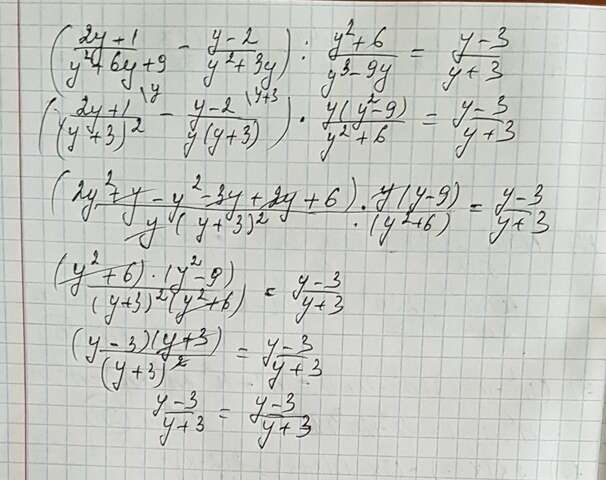 ((2y+1)/(y²+6y+9) - (y-2)/(y²+3y)) : (y²+6)/(y³-9y) = (y-3)/(y+3)
((2y+1)/(y+3)² \y - (y-2)/(y(y+3)) \y+3) · y(y²-9)/(y²+6) = (y-3)/(y+3)
(2y²+y-y²-3y+2y+6) · y(y-9)/(y(y+3)² · (y²+6)) = (y-3)/(y+3)
(y²+6)·(y²-9)/((y+3)²(y²+6)) = (y-3)/(y+3)
(y-3)(y+3)/(y+3)² = (y-3)/(y+3)
(y-3)/(y+3) = (y-3)/(y+3)